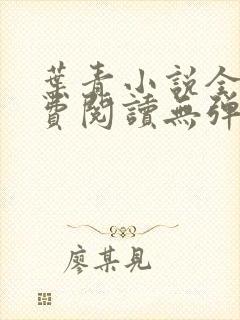 葉青小說全
費閱讀無彈
廖某見